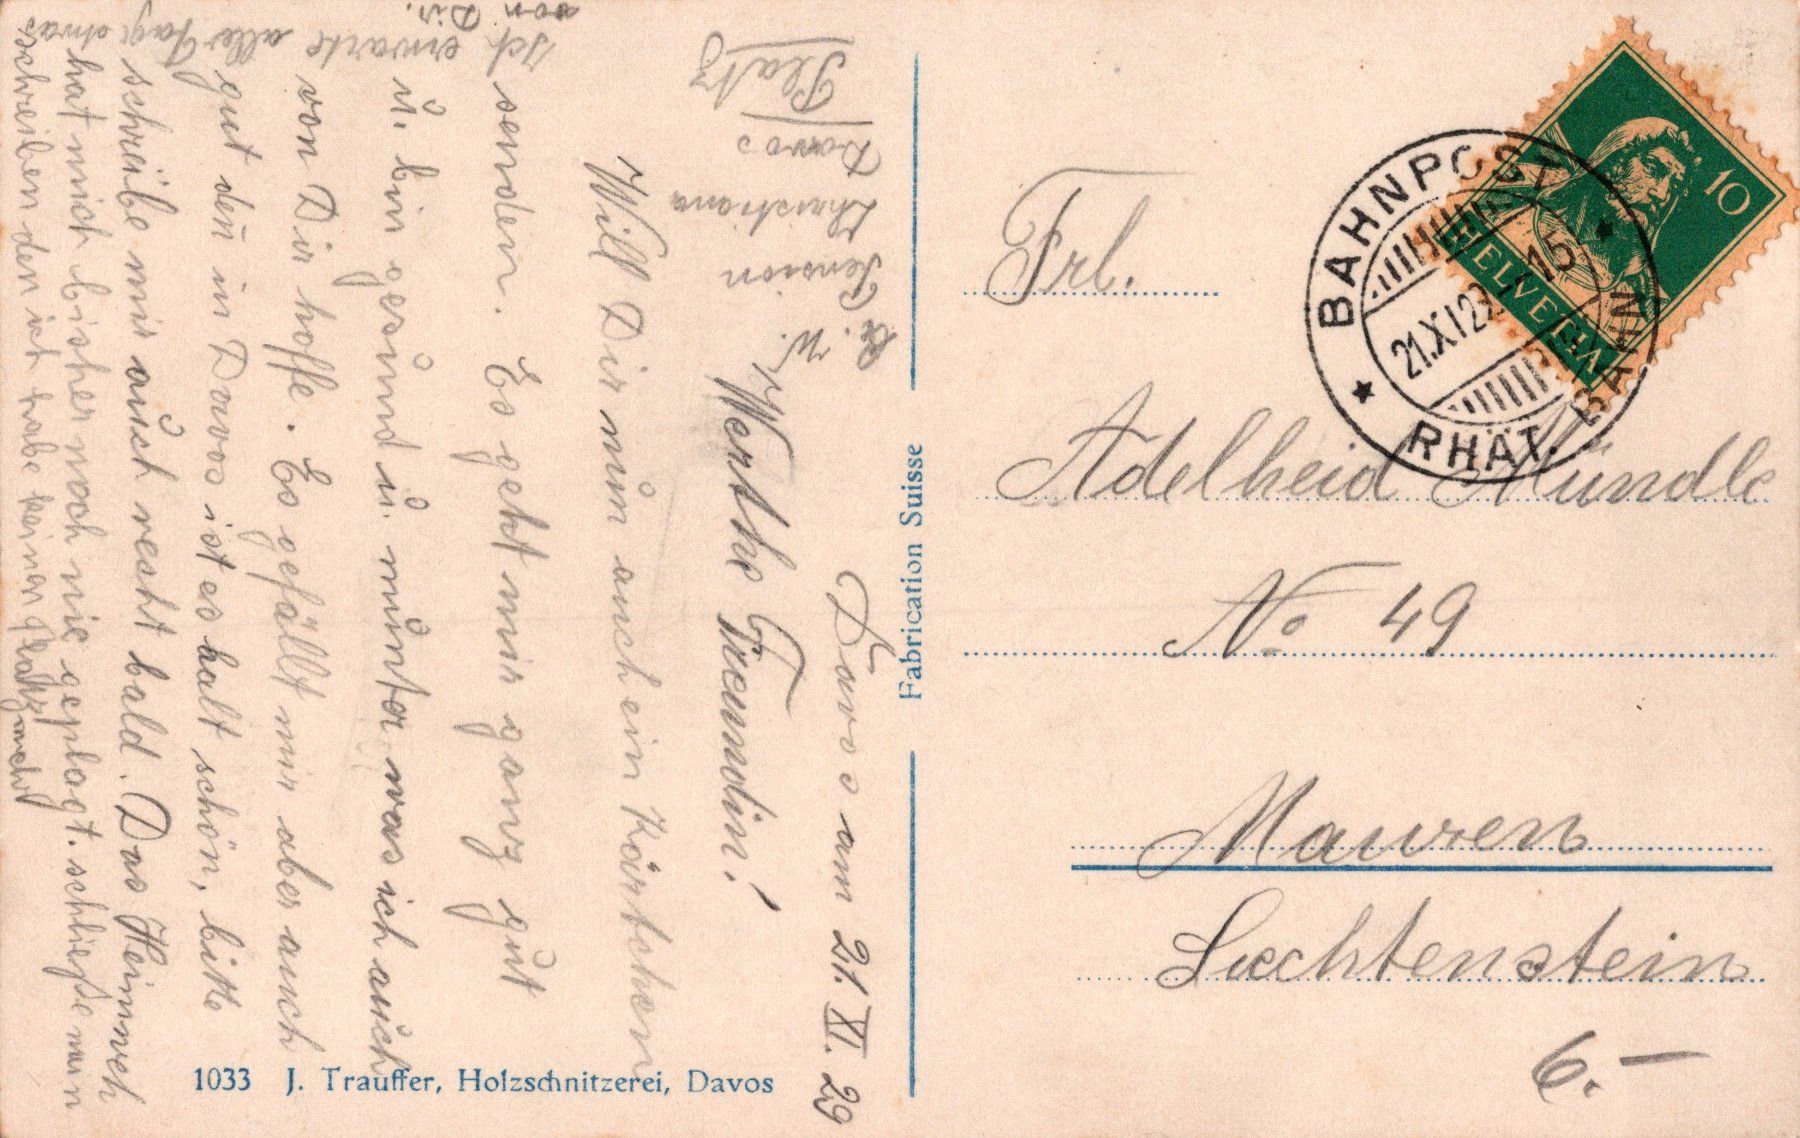 Davos am 21. XI. 29
Werthe Freundin!
Will Dir nun auch ein Kärtchen
senden. Es geht mir ganz gut
u. bin gesund u. munter was ich auch
von Dir hoffe. Es gefällt mir aber auch
gut den in Davos ist es halt schön, bitte
schreibe mir auch recht bald. Das Heimweh
hat mich bisher noch nie geplagt. schließe mein
schreiben den ich habe keinen Platz mehr
Ich erwarte alle Tage etwas
von Dir.
Pension
Christiana
Davos
Platz
Fabrication Suisse
1033 J. Trauffer, Holzschnitzerei, Davos
Frl.
Adelheid Mündle
No. 49
Mauren
Liechtenstein
6.–
10
HELVETIA
BAHNPOST
RHÄT. BAHN